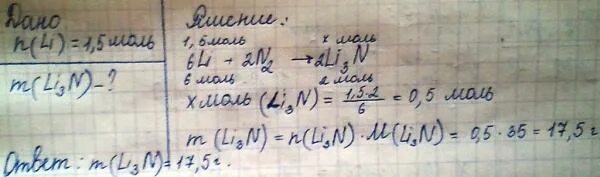 Дано
n(Li) = 1,5 моль
m(Li₃N) - ?
Решение:
1,5 моль x моль
6Li + 2N₂ → 2Li₃N
6 моль 2 моль
x моль (Li₃N) = 1,5·2/6 = 0,5 моль
m (Li₃N) = n(Li₃N) · M(Li₃N) = 0,5 · 35 = 17,5 г
Ответ: m(Li₃N) = 17,5 г.